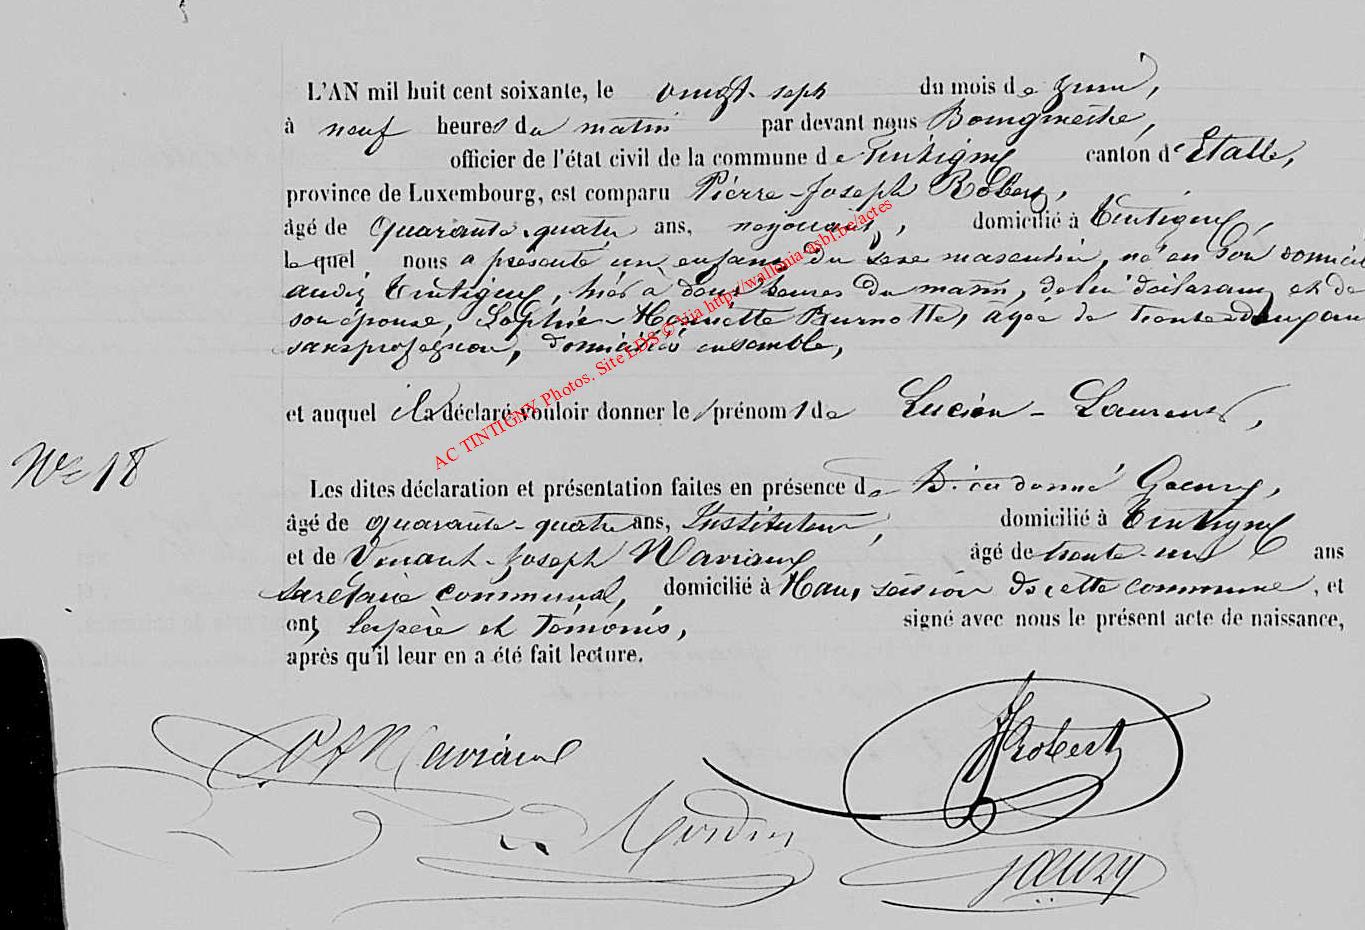 L'AN mil huit cent soixante, le vingt-sept du mois de juin,
à neuf heures du matin par devant nous Bourgmestre,
officier de l'état civil de la commune de Tintigny canton d'Etalle,
province de Luxembourg, est comparu Pierre-Joseph Robert,
âgé de quarante-quatre ans, négociant, domicilié à Tintigny,
lequel nous a présenté un enfant du sexe masculin, né en son domicile
audit Tintigny, hier à deux heures du matin, de lui déclarant et de
son épouse, Sophie-Henriette Burnotte, âgée de trente-deux ans
sans profession, domiciliés ensemble,
et auquel il a déclaré vouloir donner les prénoms de Lucien-Laurent,
N° 18
Les dites déclaration et présentation faites en présence de Dieudonné Goeury,
âgé de quarante-quatre ans, Instituteur, domicilié à Tintigny
et de Venant-Joseph Maviaux âgé de trente-un ans
secrétaire communal, domicilié à Han, section de cette commune, et
ont, le père et témoins, signé avec nous le présent acte de naissance,
après qu'il leur en a été fait lecture.
Maviaux
Robert
Goeury
AC TINTIGNY Photos. Site EDS © Via http://wallonia-asbl.be/actes